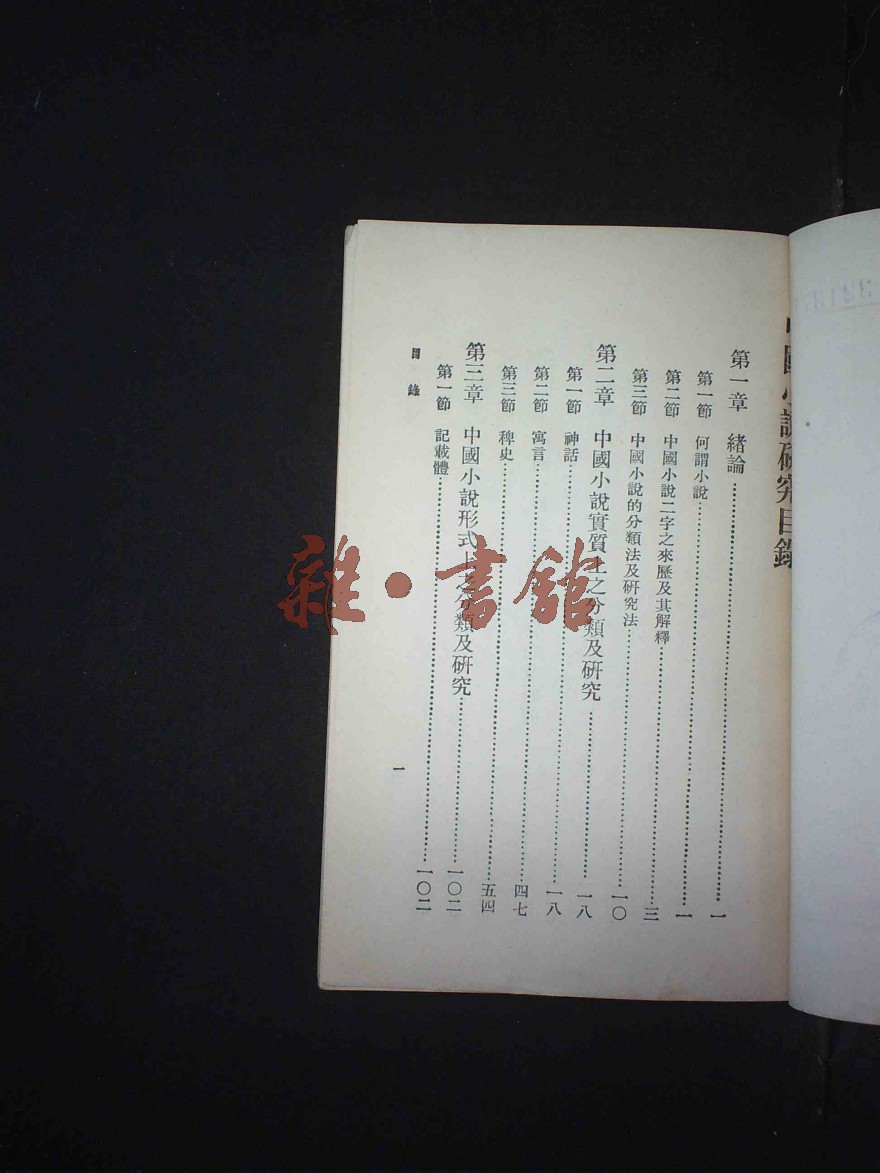 中國小說硏究目錄
第一章　緒論……一
第一節　何謂小說……一
第二節　中國小說二字之來歷及其解釋……三
第三節　中國小說的分類法及硏究法……一〇
第二章　中國小說實質上之分類及硏究……一八
第一節　神話……一八
第二節　寓言……四七
第三節　稗史……五四
第三章　中國小說形式上之分類及硏究……一〇二
第一節　記載體……一〇二
目錄
一
雜·書館